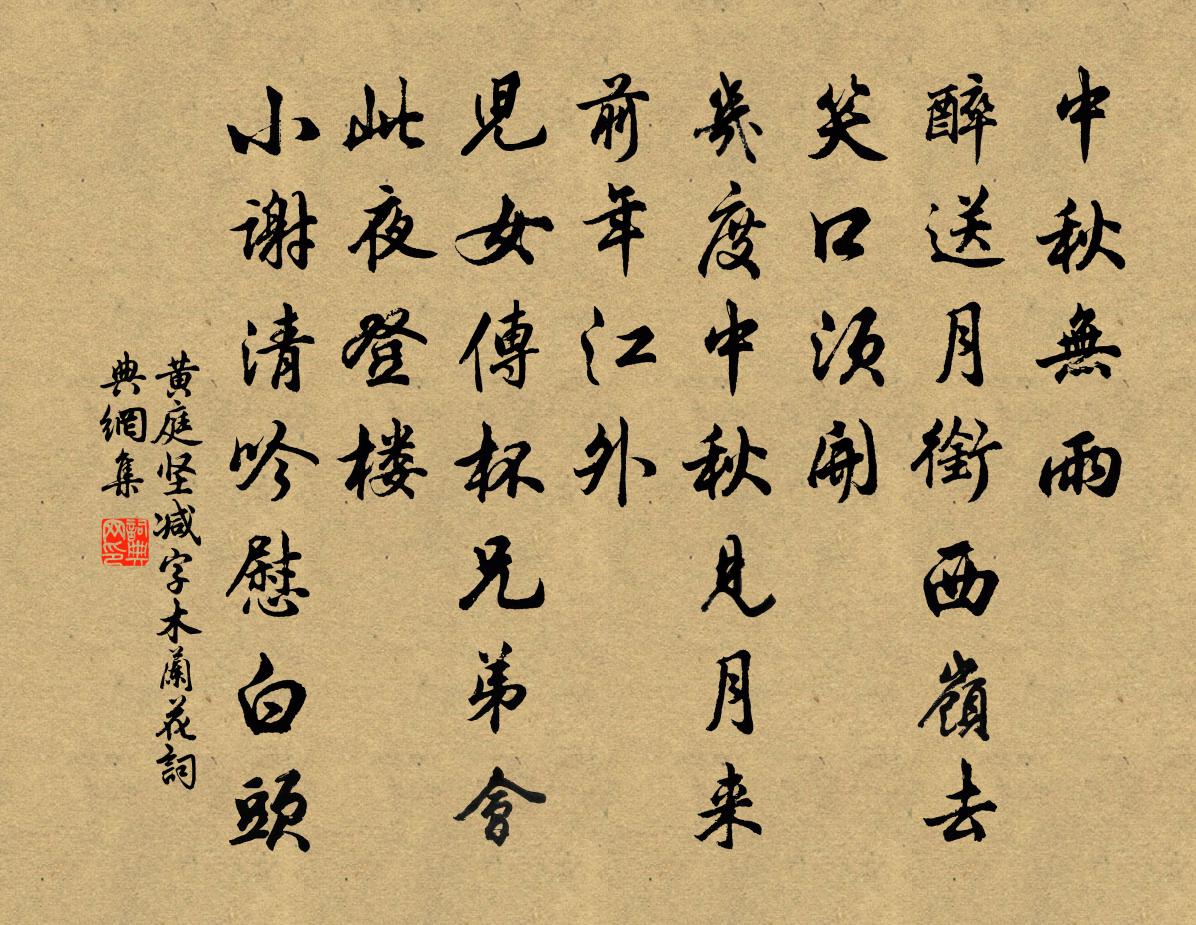 中秋無雨
醉送月銜西嶺去
笑口須開
幾度中秋見月来
前年江外
兒女傳杯兄弟會
此夜登楼
小谢清吟慰白頭
黄庭坚减字木蘭花詞
典網集
詞典网印